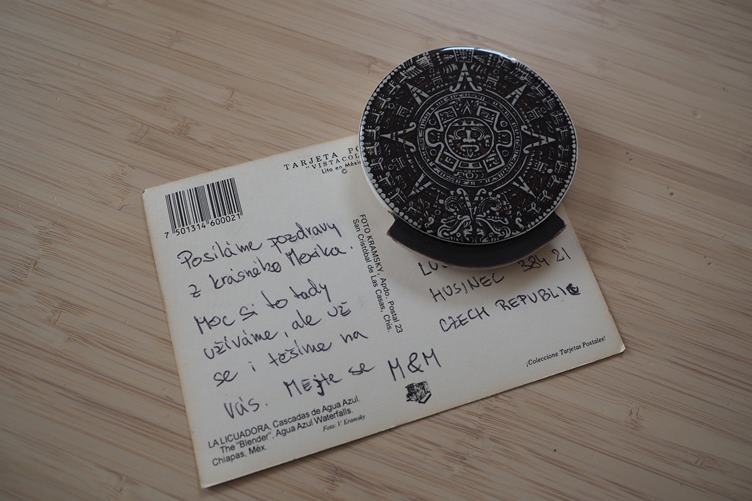 TARJETA PO
"VISTACOL
Lito en Méxi
©
7 501314 600021
Posíláme pozdravy
z krásného Mexika.
Moc si to tady
užíváme, ale už
se i těšíme na
vás. Mějte se M&M
LA LICUADORA, Cascadas de Agua Azul.
The "Blender". Agua Azul Waterfalls.
Chiapas, Méx.
Foto: V. Kramsky
FOTO KRAMSKY, Apdo. Postal 23
San Cristóbal de Las Casas, Chis.
HUSINEC 384 21
CZECH REPUBLIC
¡Coleccione Tarjetas Postales!